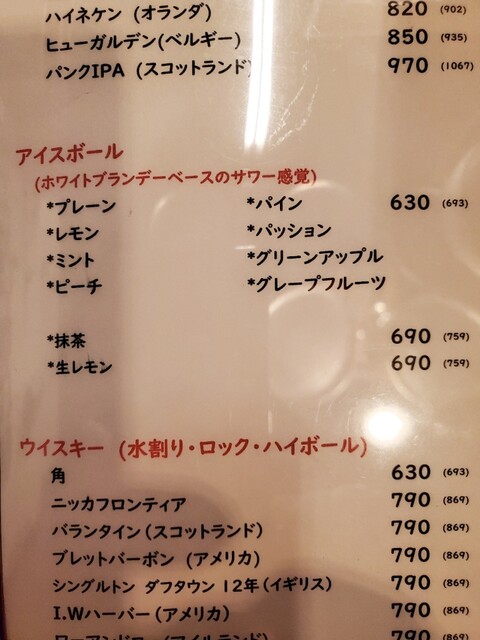 ハイネケン (オランダ) 820 (902)
ヒューガルデン(ベルギー) 850 (935)
パンクIPA (スコットランド) 970 (1067)
アイスボール
(ホワイトブランデーベースのサワー感覚)
*プレーン *パイン 630 (693)
*レモン *パッション
*ミント *グリーンアップル
*ピーチ *グレープフルーツ
*抹茶 690 (759)
*生レモン 690 (759)
ウイスキー (水割り・ロック・ハイボール)
角 630 (693)
ニッカフロンティア 790 (869)
バランタイン(スコットランド) 790 (869)
ブレットバーボン (アメリカ) 790 (869)
シングルトン ダフタウン 12年(イギリス) 790 (869)
I.Wハーパー(アメリカ) 790 (869)
790 (869)